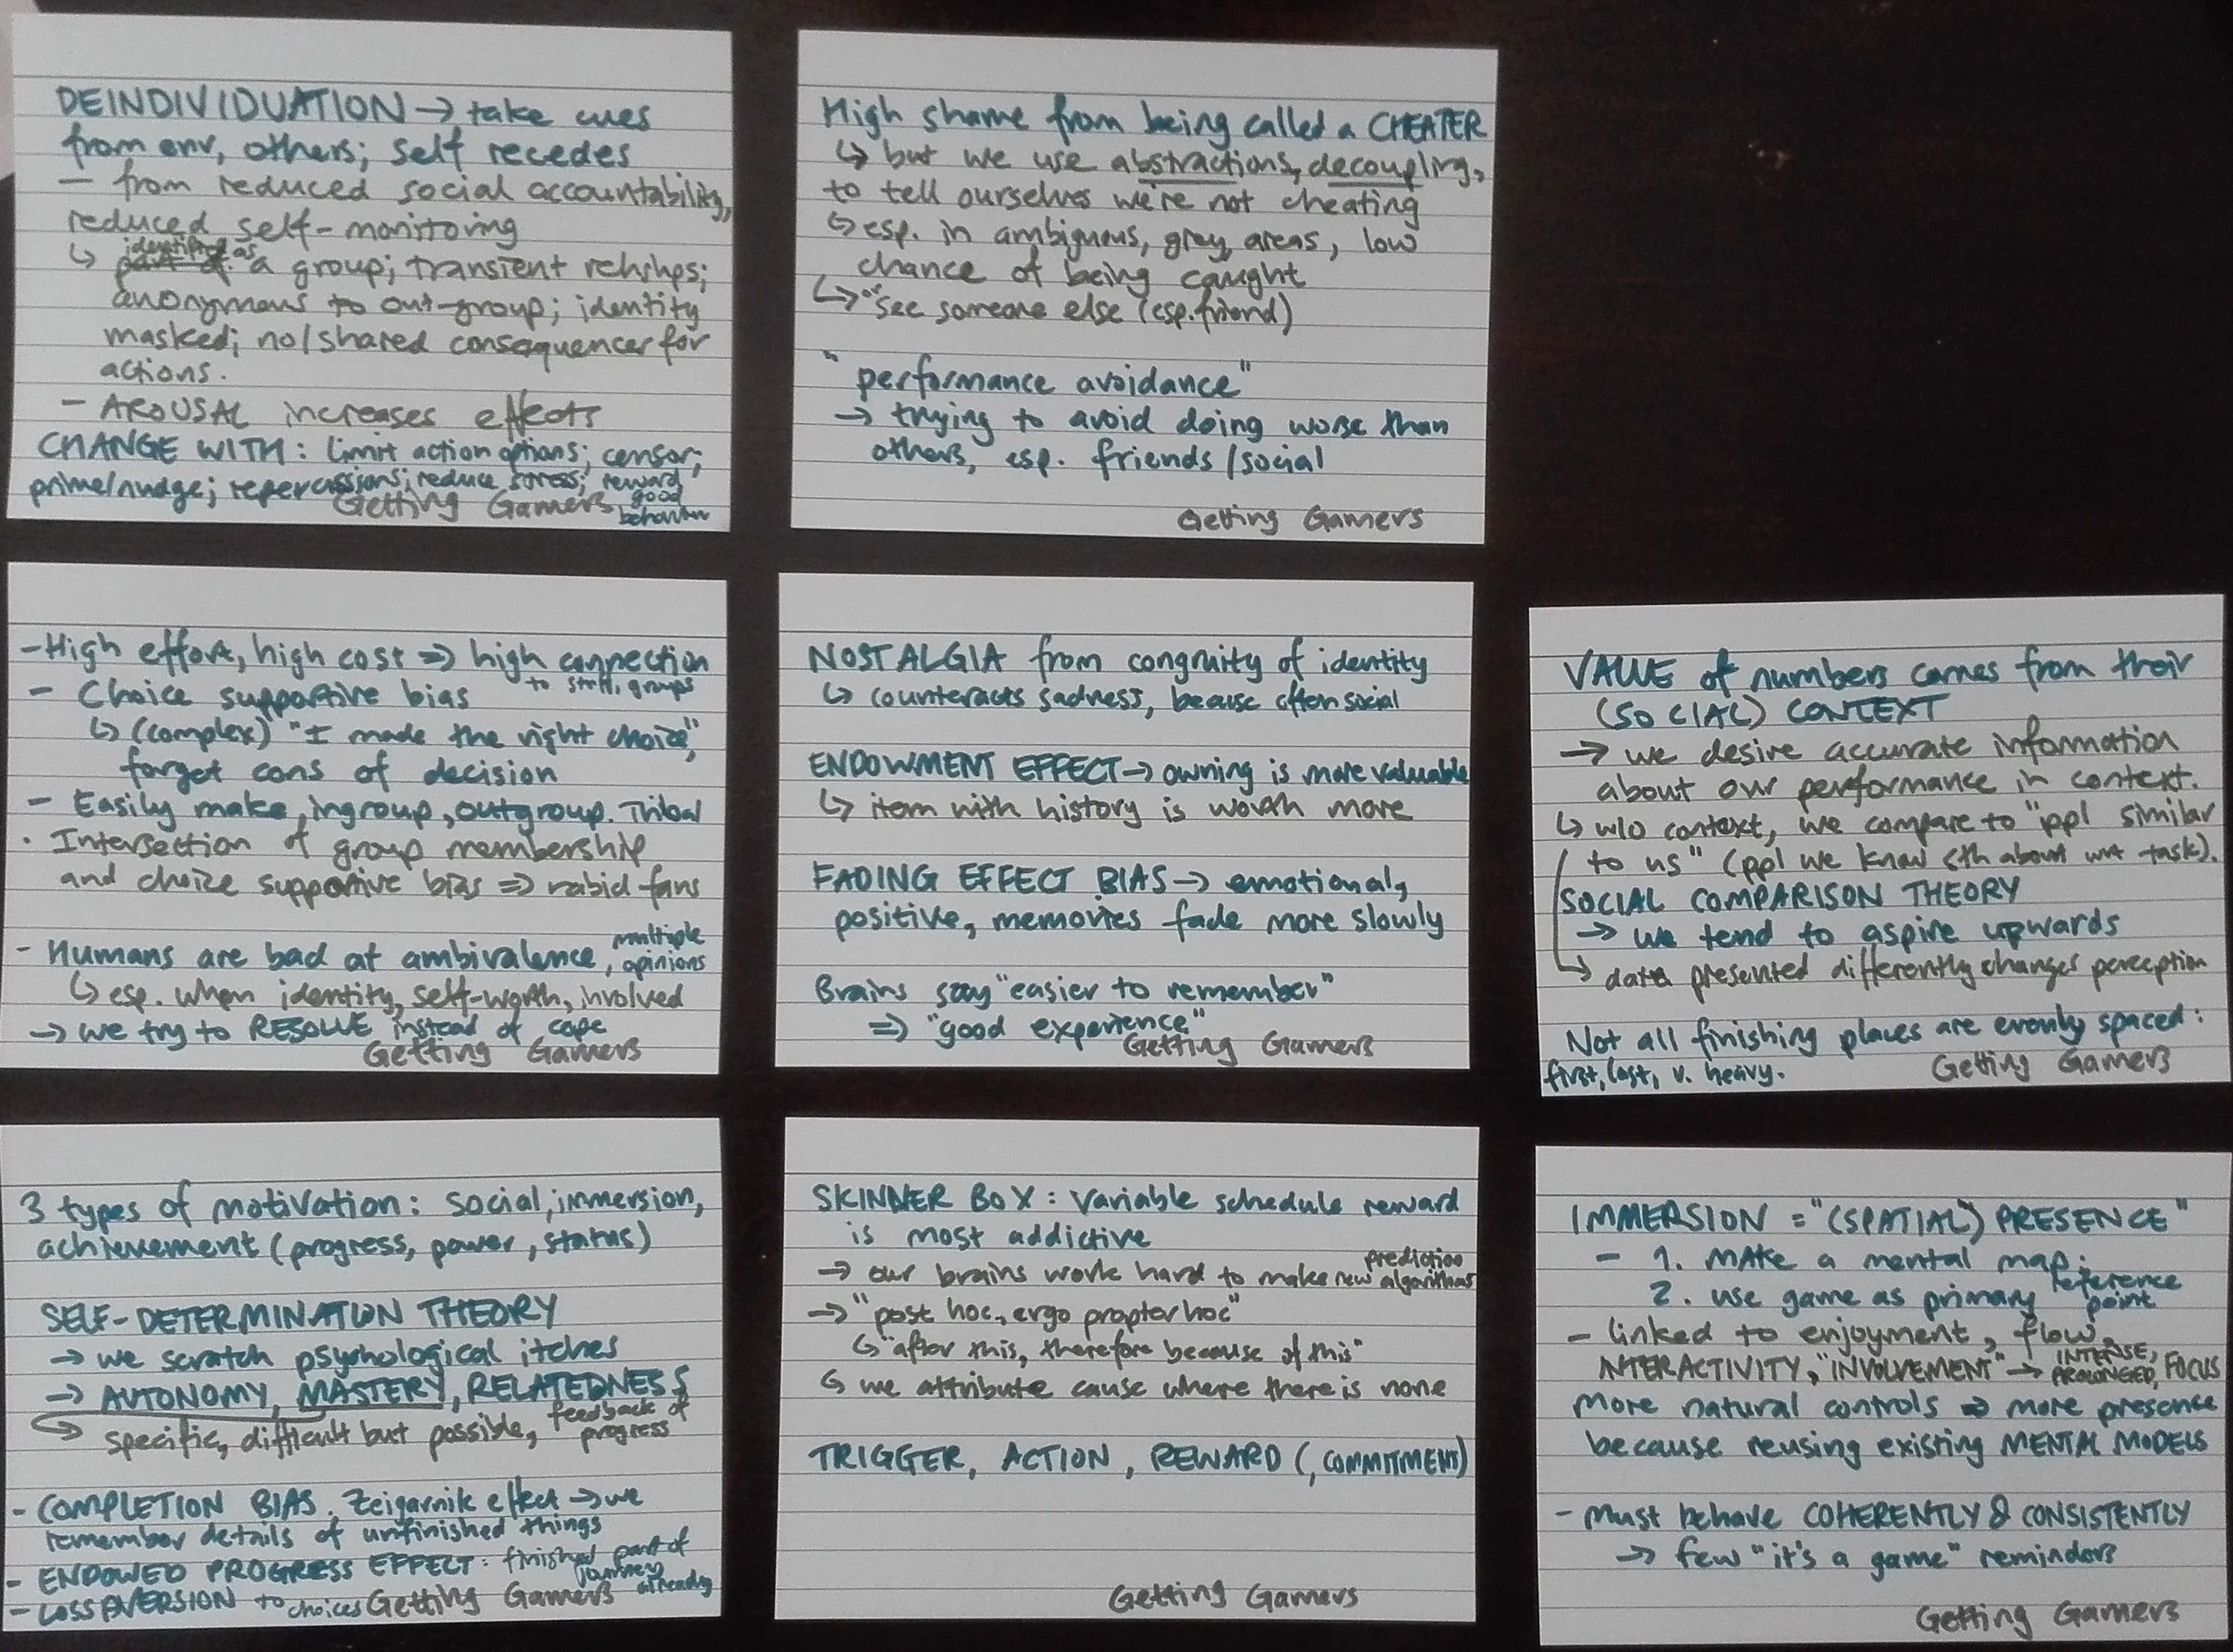 DEINDIVIDUATION → take cues
from env, others; self recedes
— from reduced social accountability,
reduced self-monitoring
↳ identified as a group; transient relnshps;
anonymous to out-group; identity
masked; no/shared consequences for
actions.
— AROUSAL increases effects
CHANGE WITH: limit action options; censor;
prime/nudge; repercussions; reduce stress; reward
good
behaviour
Getting Gamers
High shame from being called a CHEATER
↳ but we use abstractions, decoupling,
to tell ourselves we're not cheating
↳ esp. in ambiguous, grey areas, low
chance of being caught
↳ "see someone else (esp. friend)
"performance avoidance"
→ trying to avoid doing worse than
others, esp. friends/social
Getting Gamers
- High effort, high cost ⇒ high connection
to stuff, groups
- Choice supportive bias
↳ (complex) "I made the right choice",
forget cons of decision
- Easily make ingroup, outgroup. Tribal
· Intersection of group membership
and choice supportive bias ⇒ rabid fans
- Humans are bad at ambivalence, multiple
opinions
↳ esp. when identity, self-worth, involved
→ we try to RESOLVE instead of cope
Getting Gamers
NOSTALGIA from congruity of identity
↳ counteracts sadness, because often social
ENDOWMENT EFFECT → owning is more valuable
↳ item with history is worth more
FADING EFFECT BIAS → emotional,
positive, memories fade more slowly
Brains say "easier to remember"
⇒ "good experience"
Getting Gamers
VALUE of numbers comes from their
(SOCIAL) CONTEXT
→ we desire accurate information
about our performance in context.
↳ w/o context, we compare to "ppl similar
to us" (ppl we know sth about wrt task).
SOCIAL COMPARISON THEORY
→ we tend to aspire upwards
↳ data presented differently changes perception
Not all finishing places are evenly spaced:
first, last, v. heavy.
Getting Gamers
3 types of motivation: social, immersion,
achievement (progress, power, status)
SELF-DETERMINATION THEORY
→ we scratch psychological itches
→ AUTONOMY, MASTERY, RELATEDNESS
↳ specific, difficult but possible, feedback of
progress
- COMPLETION BIAS. Zeigarnik effect → we
remember details of unfinished things
- ENDOWED PROGRESS EFFECT: finished part of
journey
already
- LOSS AVERSION to choices
Getting Gamers
SKINNER BOX: Variable schedule reward
is most addictive
→ our brains work hard to make new prediction
algorithms
→ "post hoc, ergo propter hoc"
↳ "after this, therefore because of this"
↳ we attribute cause where there is none
TRIGGER, ACTION, REWARD (, COMMITMENT)
Getting Gamers
IMMERSION = "(SPATIAL) PRESENCE"
- 1. MAKE a mental map;
2. use game as primary reference
point
- linked to enjoyment, flow,
INTERACTIVITY, "INVOLVEMENT" → INTENSE,
PROLONGED, FOCUS
More natural controls ⇒ more presence
because reusing existing MENTAL MODELS
- Must behave COHERENTLY & CONSISTENTLY
→ few "it's a game" reminders
Getting Gamers